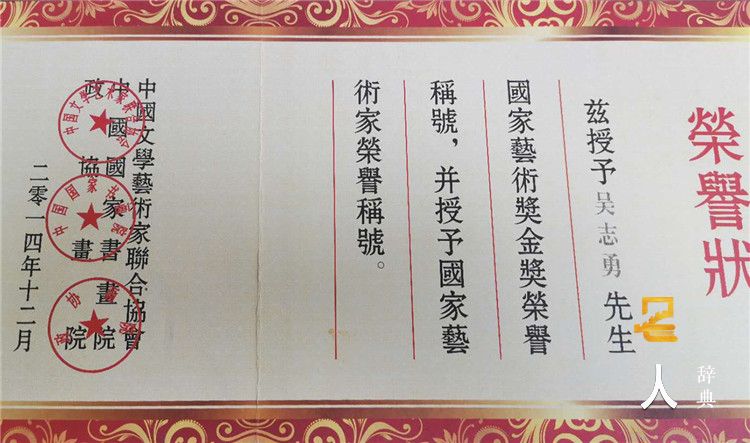 榮譽狀
兹授予吴志勇先生
國家藝術獎金獎榮譽
稱號，并授予國家藝
術家榮譽稱號。
中國文學藝術家聯合協會
中國國家書畫院
政協書畫院
二零一四年十二月
人 辞典